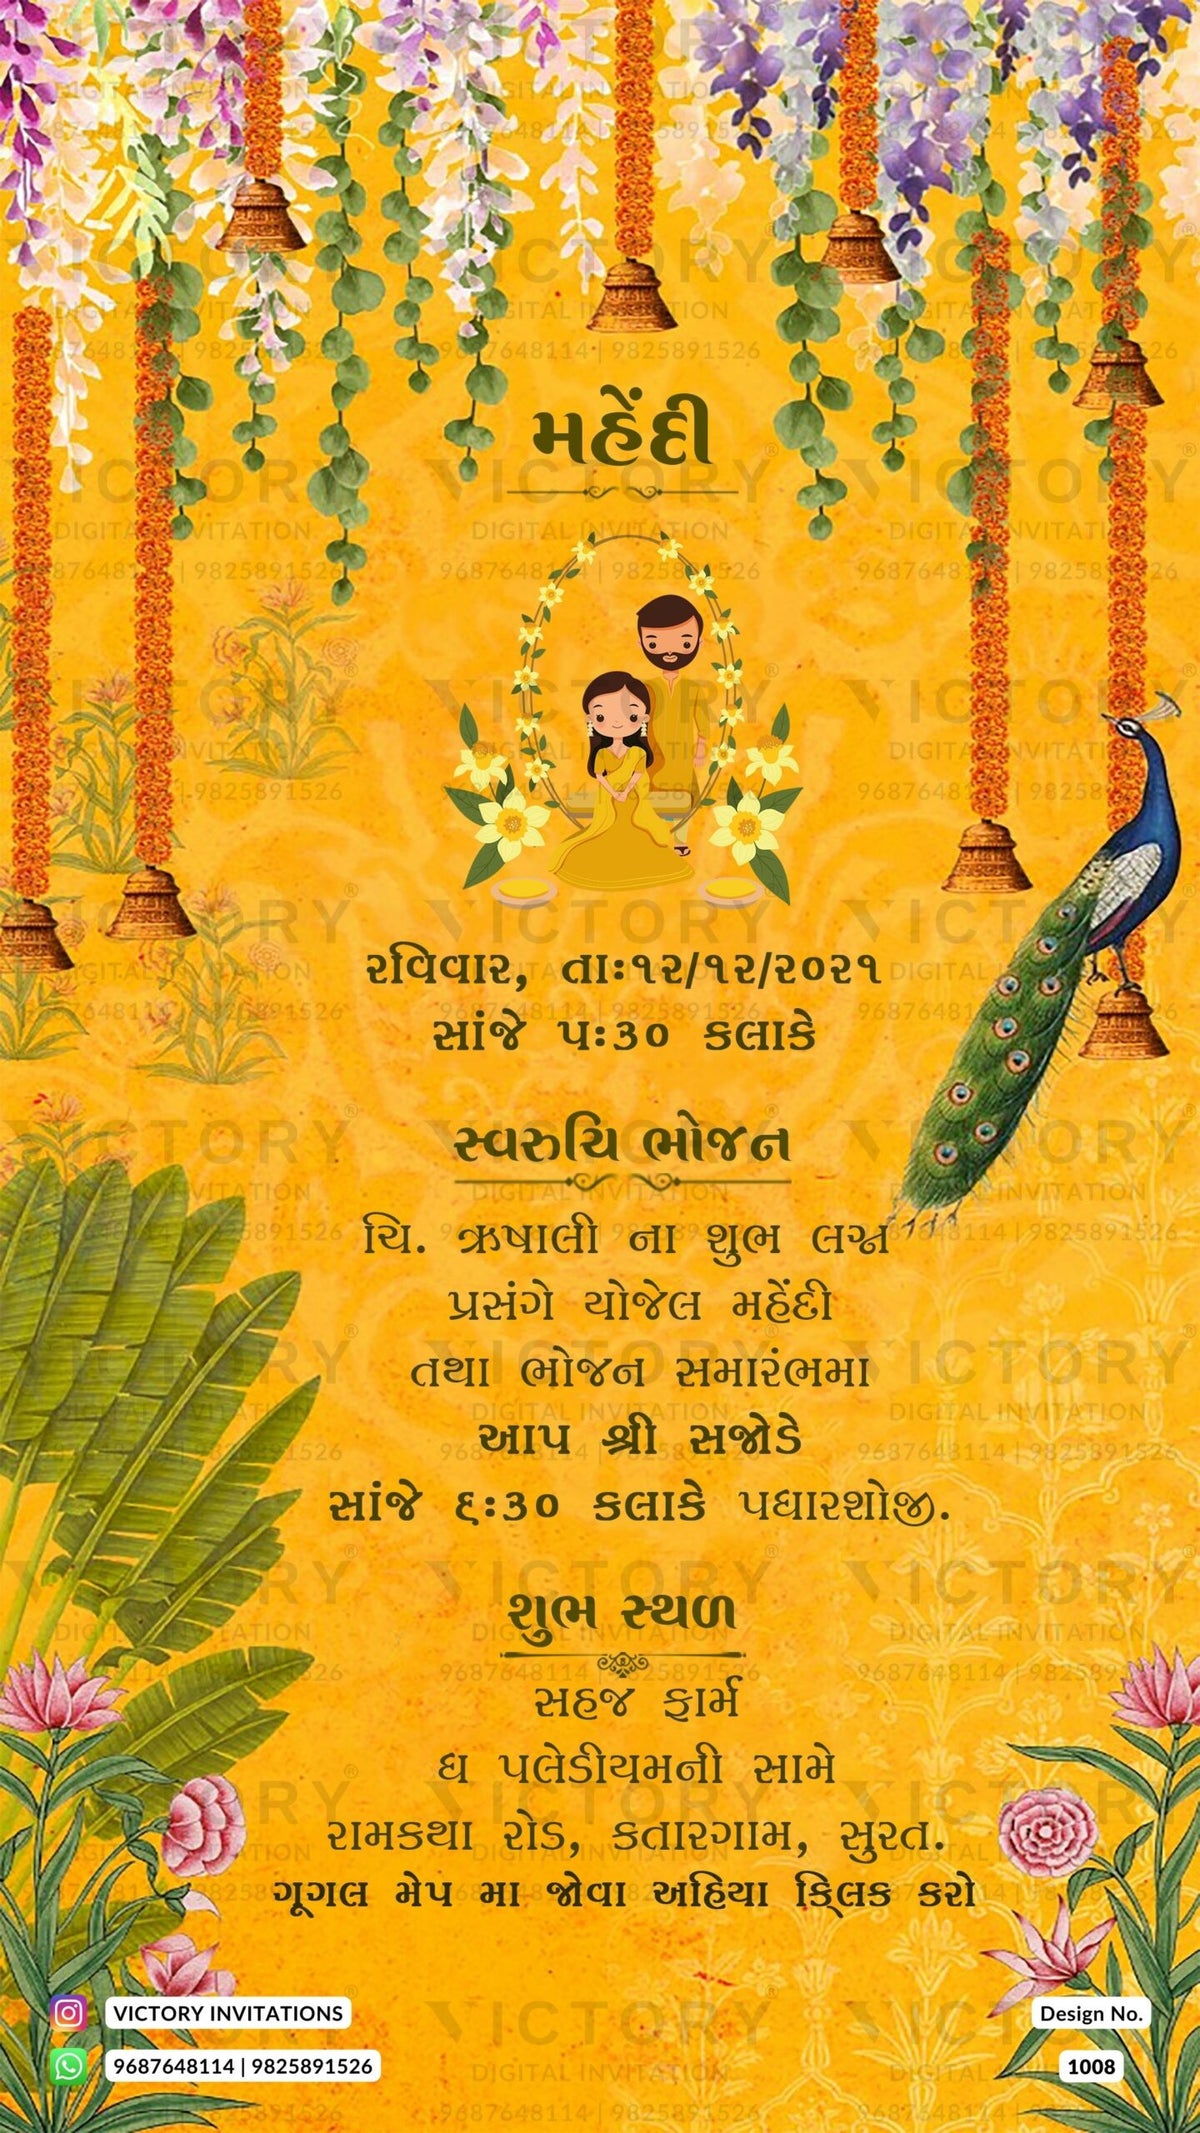 મહેંદી
રવિવાર, તાઃ૧૨/૧૨/૨૦૨૧
સાંજે ૫ઃ૩૦ કલાકે
સ્વરુચિ ભોજન
ચિ. ઋષાલી ના શુભ લગ્ન
પ્રસંગે યોજેલ મહેંદી
તથા ભોજન સમારંભમા
આપ શ્રી સજોડે
સાંજે ૬ઃ૩૦ કલાકે પધારશોજી.
શુભ સ્થળ
સહજ ફાર્મ
ધ પલેડીયમની સામે
રામકથા રોડ, કતારગામ, સુરત.
ગૂગલ મેપ મા જોવા અહિયા ક્લિક કરો
VICTORY INVITATIONS
9687648114 | 9825891526
Design No.
1008
VICTORY
DIGITAL INVITATION
9687648114 | 9825891526